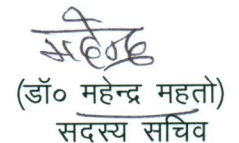 महेन्द्र
(डॉ० महेन्द्र महतो)
सदस्य सचिव